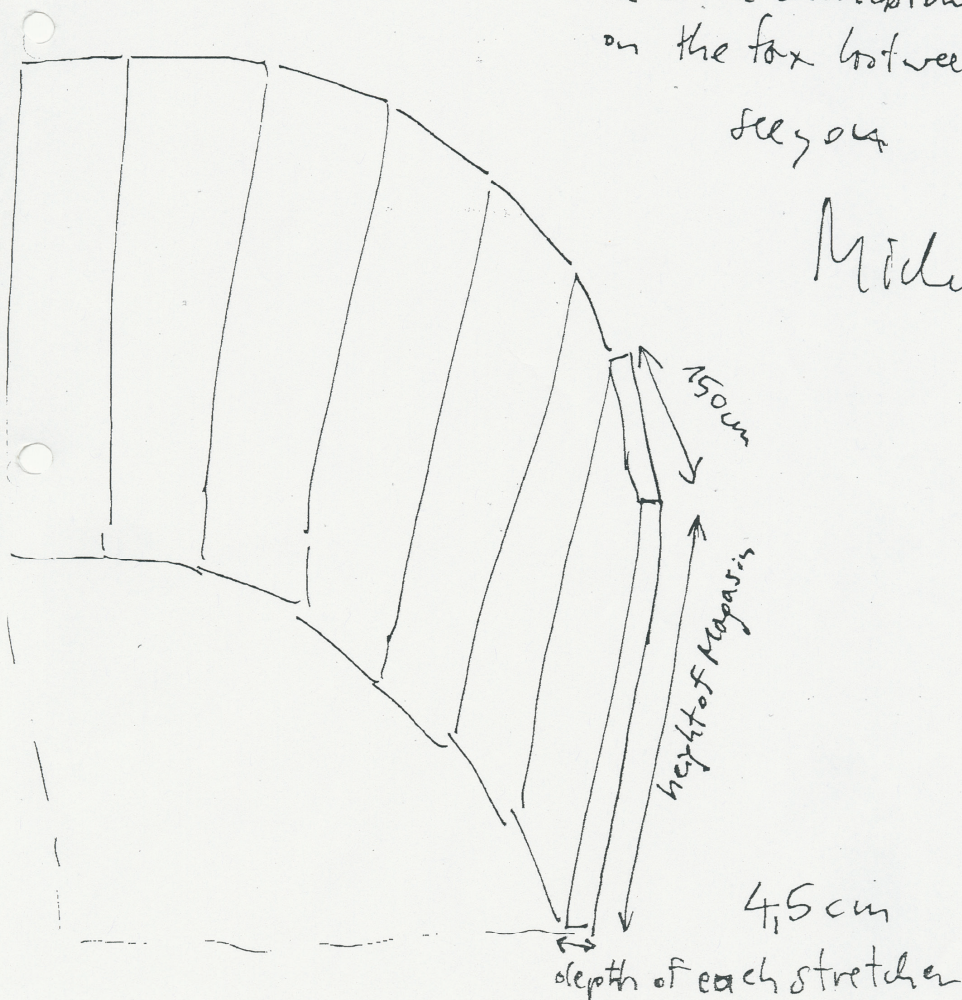 on the fax
see you
150cm
height of Magasin
4,5 cm
depth of each stretcher